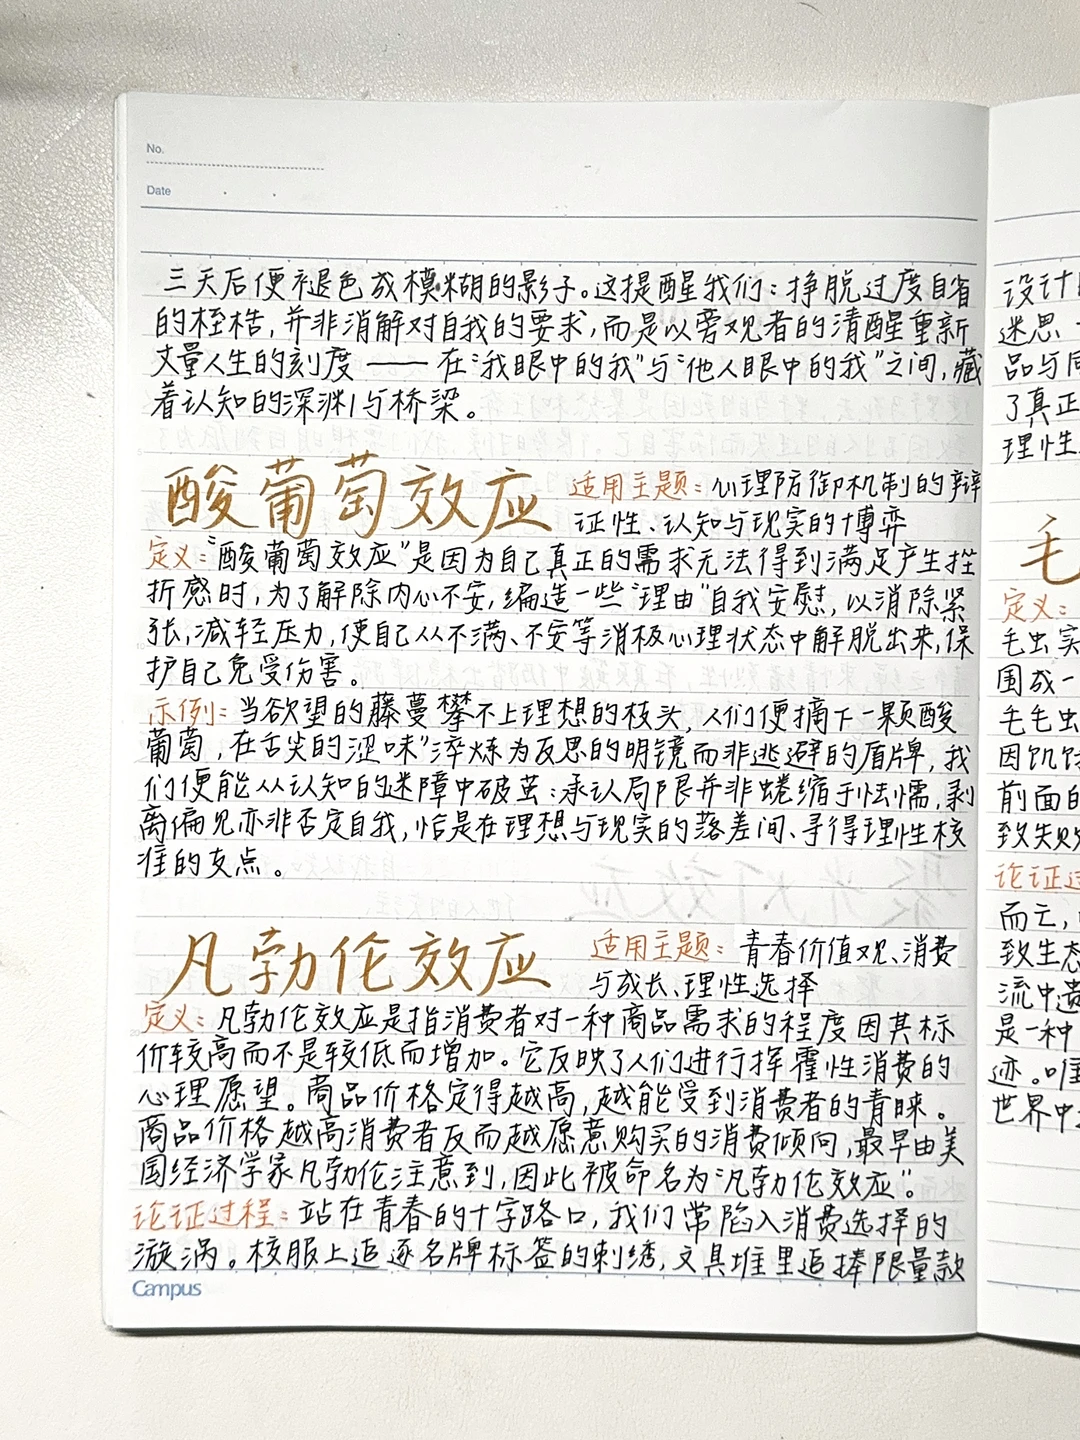 No.
Date
三天后便褪色成模糊的影子。这提醒我们：挣脱过度自省
的桎梏，并非消解对自我的要求，而是以旁观者的清醒重新
丈量人生的刻度——在“我眼中的我”与“他人眼中的我”之间，藏
着认知的深渊与桥梁。
酸葡萄效应 适用主题：心理防御机制的辩
证性、认知与现实的博弈
定义：“酸葡萄效应”是因为自己真正的需求无法得到满足产生挫
折感时，为了解除内心不安，编造一些“理由”自我安慰，以消除紧
张，减轻压力，使自己从不满、不安等消极心理状态中解脱出来，保
护自己免受伤害。
示例：当欲望的藤蔓攀不上理想的枝头，人们便摘下一颗酸
葡萄，在舌尖的涩味”淬炼为反思的明镜而非逃避的盾牌，我
们便能从认知的迷障中破茧：承认局限并非蜷缩于怯懦，剥
离偏见亦非否定自我，恰是在理想与现实的落差间、寻得理性校
准的支点。
凡勃伦效应 适用主题：青春价值观、消费
与成长、理性选择
定义：凡勃伦效应是指消费者对一种商品需求的程度因其标
价较高而不是较低而增加。它反映了人们进行挥霍性消费的
心理愿望。商品价格定得越高，越能受到消费者的青睐。
商品价格越高消费者反而越愿意购买的消费倾向，最早由美
国经济学家凡勃伦注意到，因此被命名为“凡勃伦效应”。
论证过程：站在青春的十字路口，我们常陷入消费选择的
漩涡。校服上追逐名牌标签的刺绣，文具堆里追捧限量款
Campus
设计
迷思
品与同
了真正
理性
毛
定义：
毛虫实
围成一
毛毛虫
因饥饿
前面的
致失败
论证过
而亡，
致生态
流中遗
是一种
迹。唯
世界中